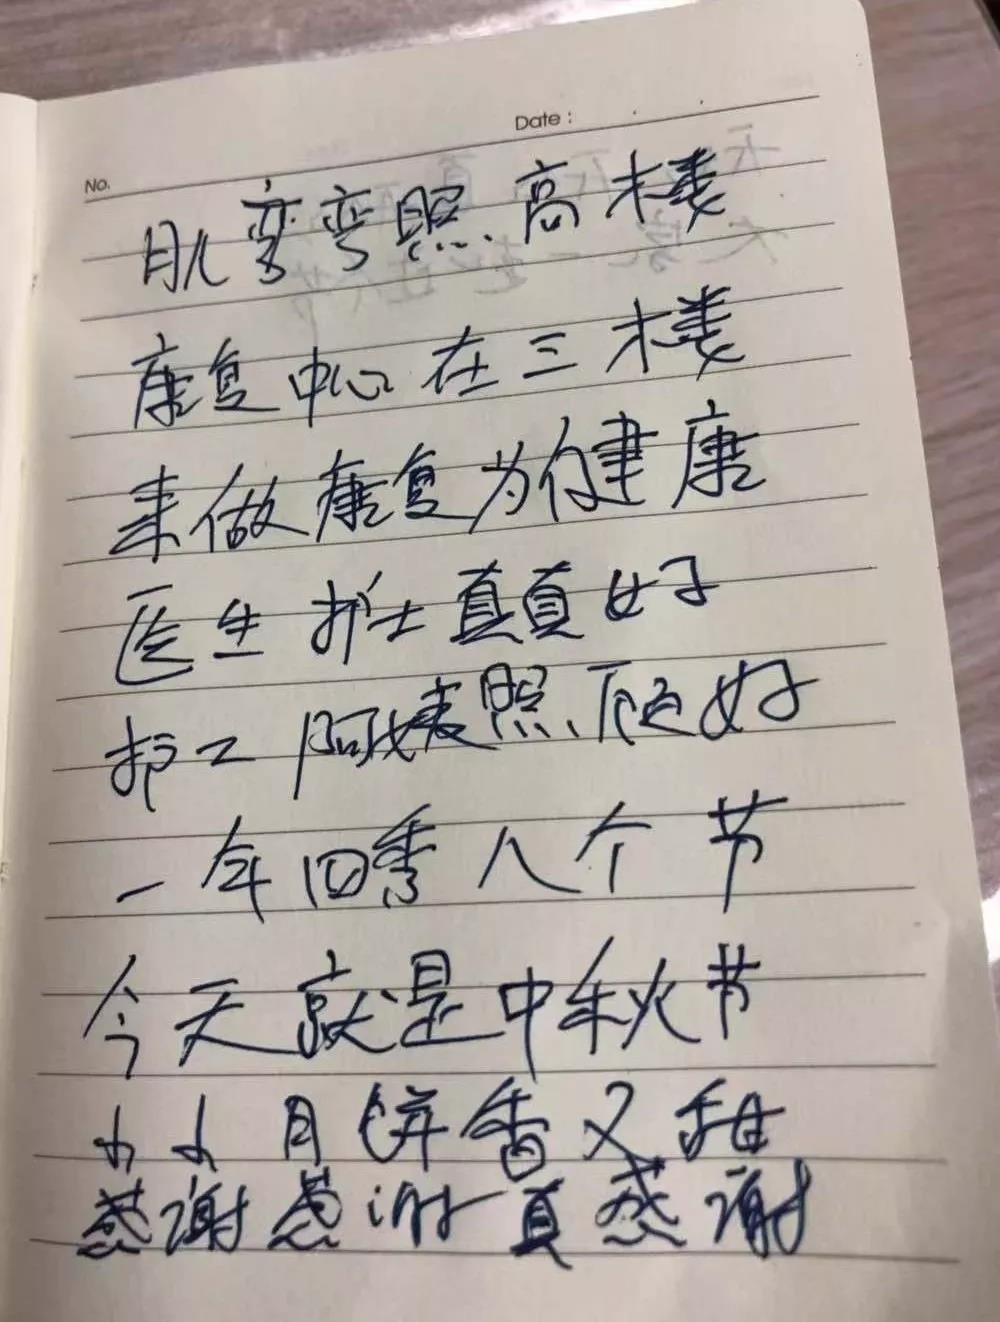 No.
Date :
月儿弯弯照高楼
康复中心在三楼
来做康复为健康
医生护士真真好
护工阿姨照顾好
一年四季八个节
今天就是中秋节
小小月饼香又甜
感谢感谢真感谢